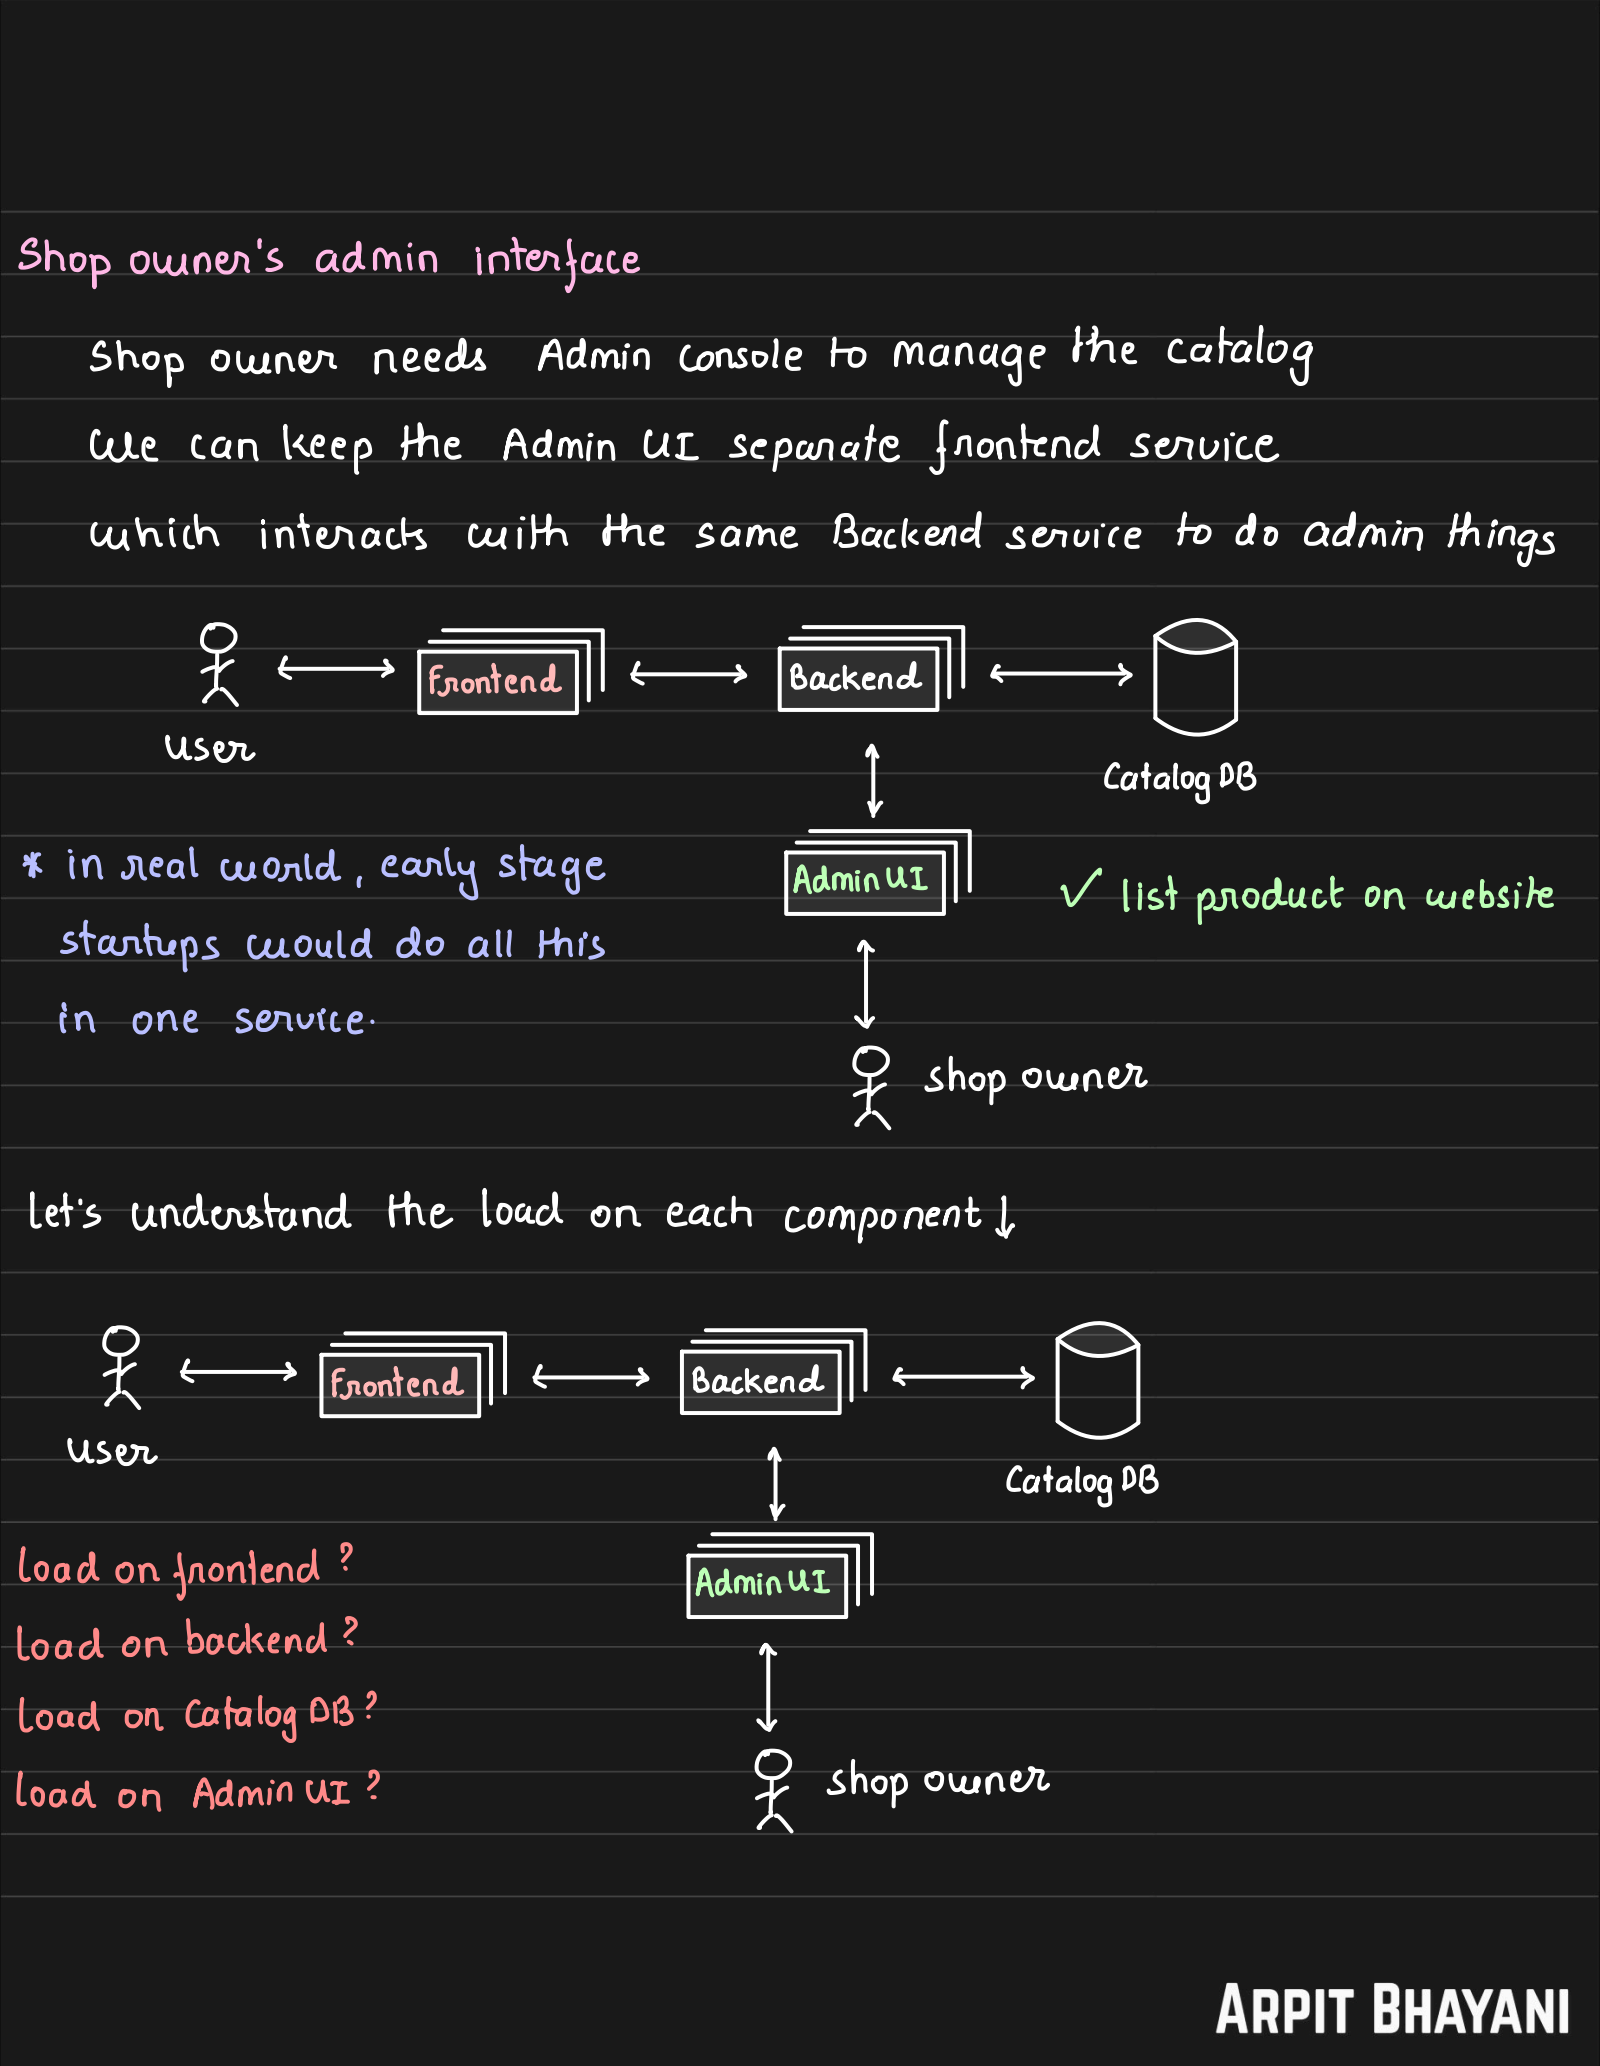 Shop owner's admin interface
Shop owner needs Admin console to manage the catalog
we can keep the Admin UI separate frontend service
which interacts with the same Backend service to do admin things
Frontend
Backend
user
Catalog DB
* in real world, early stage
startups would do all this
in one service.
Admin UI
✓ list product on website
shop owner
let's understand the load on each component ↓
Frontend
Backend
user
Catalog DB
load on frontend ?
load on backend ?
load on Catalog DB ?
load on Admin UI ?
Admin UI
shop owner
ARPIT BHAYANI